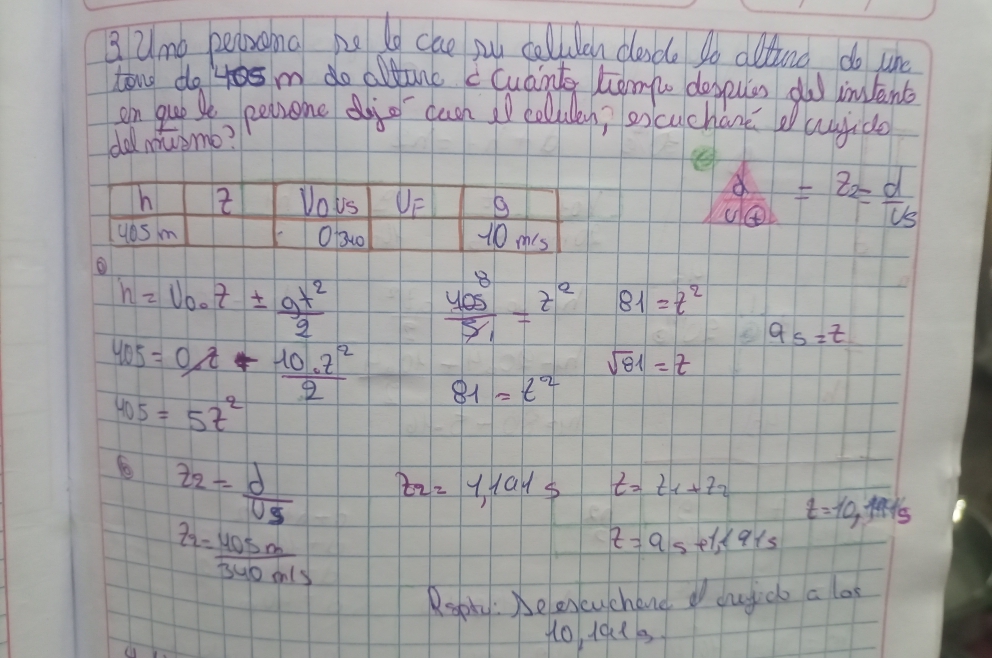 3. Una persona se le cae su celular desde la altura de una
torre de 405 m de altura ¿Cuánto tiempo después del instante
en que la persona dejó caer el celular, escuchará el crujido
del mismo?
d
v t
= t2 = d/vs
h t Vo vs VF g
405 m 0 340 10 m/s
a
h = Vo.t ± gt²/2
405 = 0.t + 10.t²/2
405 = 5t²
405/5 = t²
81 = t²
81 = t²
√81 = t
9s = t
b
t2 = d/Vs
t2 = 405 m/340 m/s
t2 = 1,191 s
t = t1 + t2
t = 9s + 1,191s
t = 10,191s
Rspta: Se escuchará el crujido a los
10,191 s.